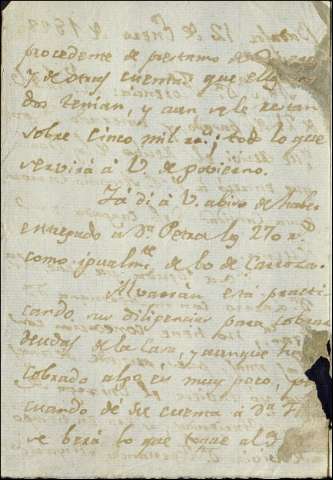 procedente de prestamo de
y de otras cuentas que ellos
dos tenian, y aun se le restan
sobre cinco mil rs.; todo lo que
servirá á V. de govierno.
Ya di á V. abiso de haber
entregado á Dª Petra los 270 rs.
como igualmte. de lo de Carroza.
Alvarrán está practi
cando sus diligencias para cobrar
deudas de la Casa, y aunque
cobrado algo es muy poco,
cuando dé su cuenta á Dª
se berá lo que toque al